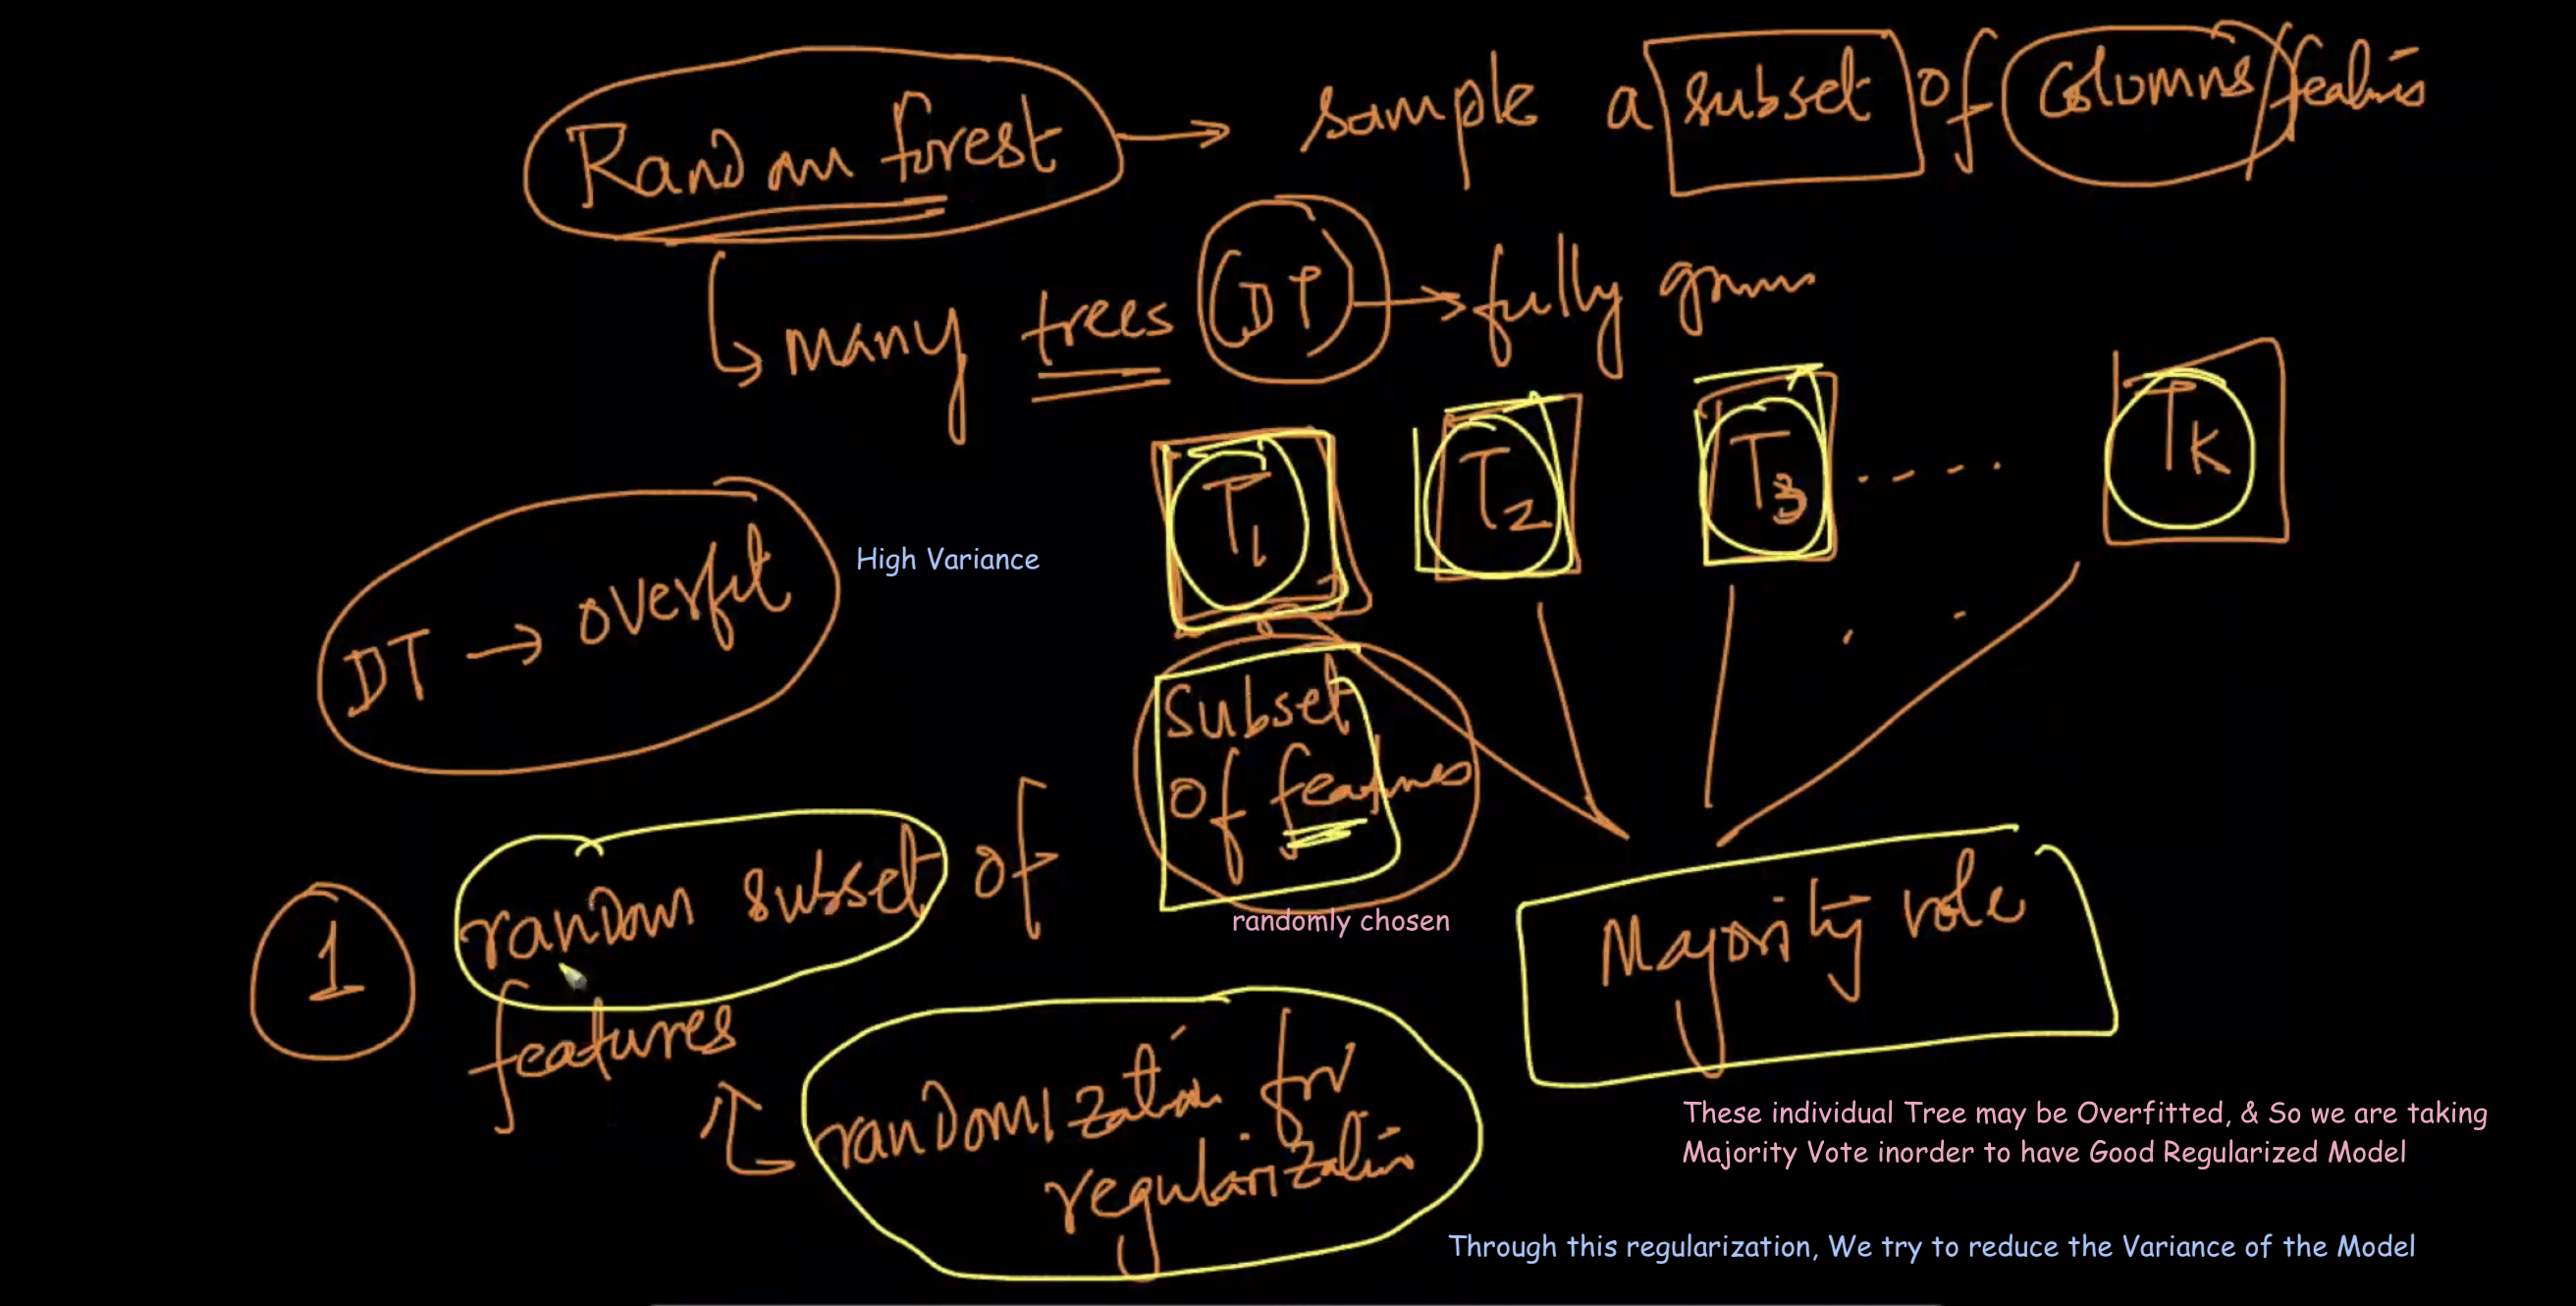 Random forest → sample a subset of columns/features
↳ many trees (DT) → fully grown
T1 T2 T3 ..... TK
DT → overfit
High Variance
Subset
of features
randomly chosen
1 random subset of
features
randomization for
regularization
Majority vote
These individual Tree may be Overfitted, & So we are taking
Majority Vote inorder to have Good Regularized Model
Through this regularization, We try to reduce the Variance of the Model